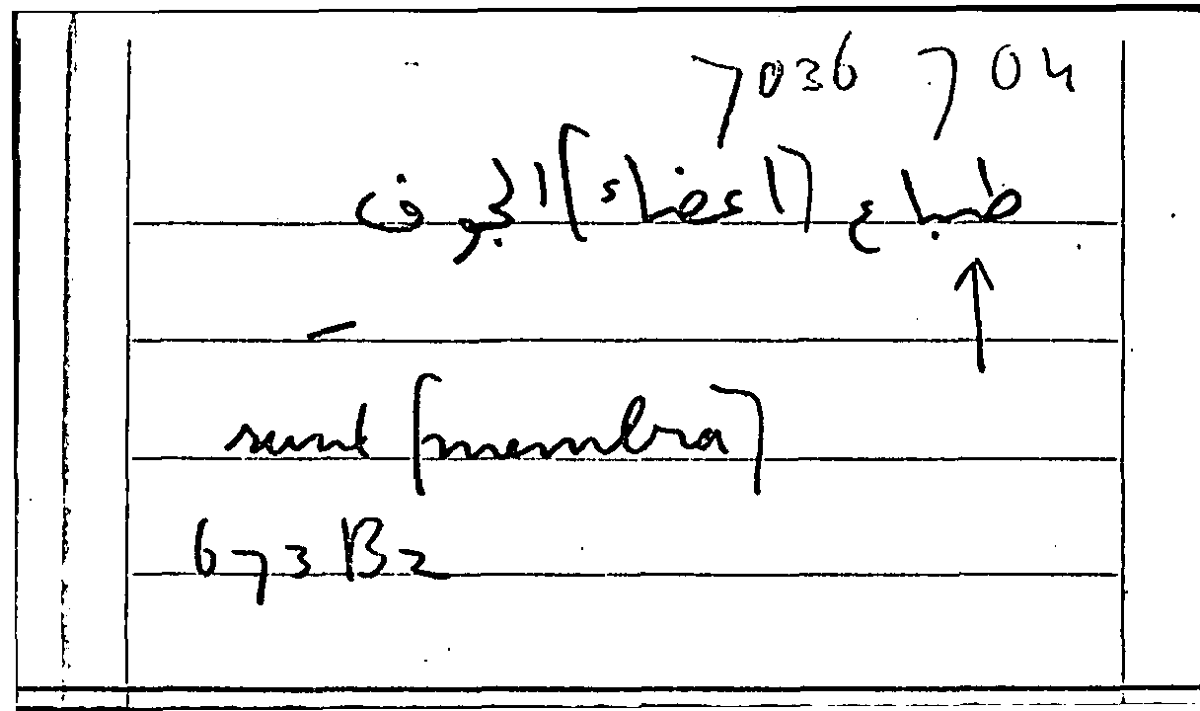 7036 704
طباع [اعضاء] الجوف
sunt [membra]
673 B2